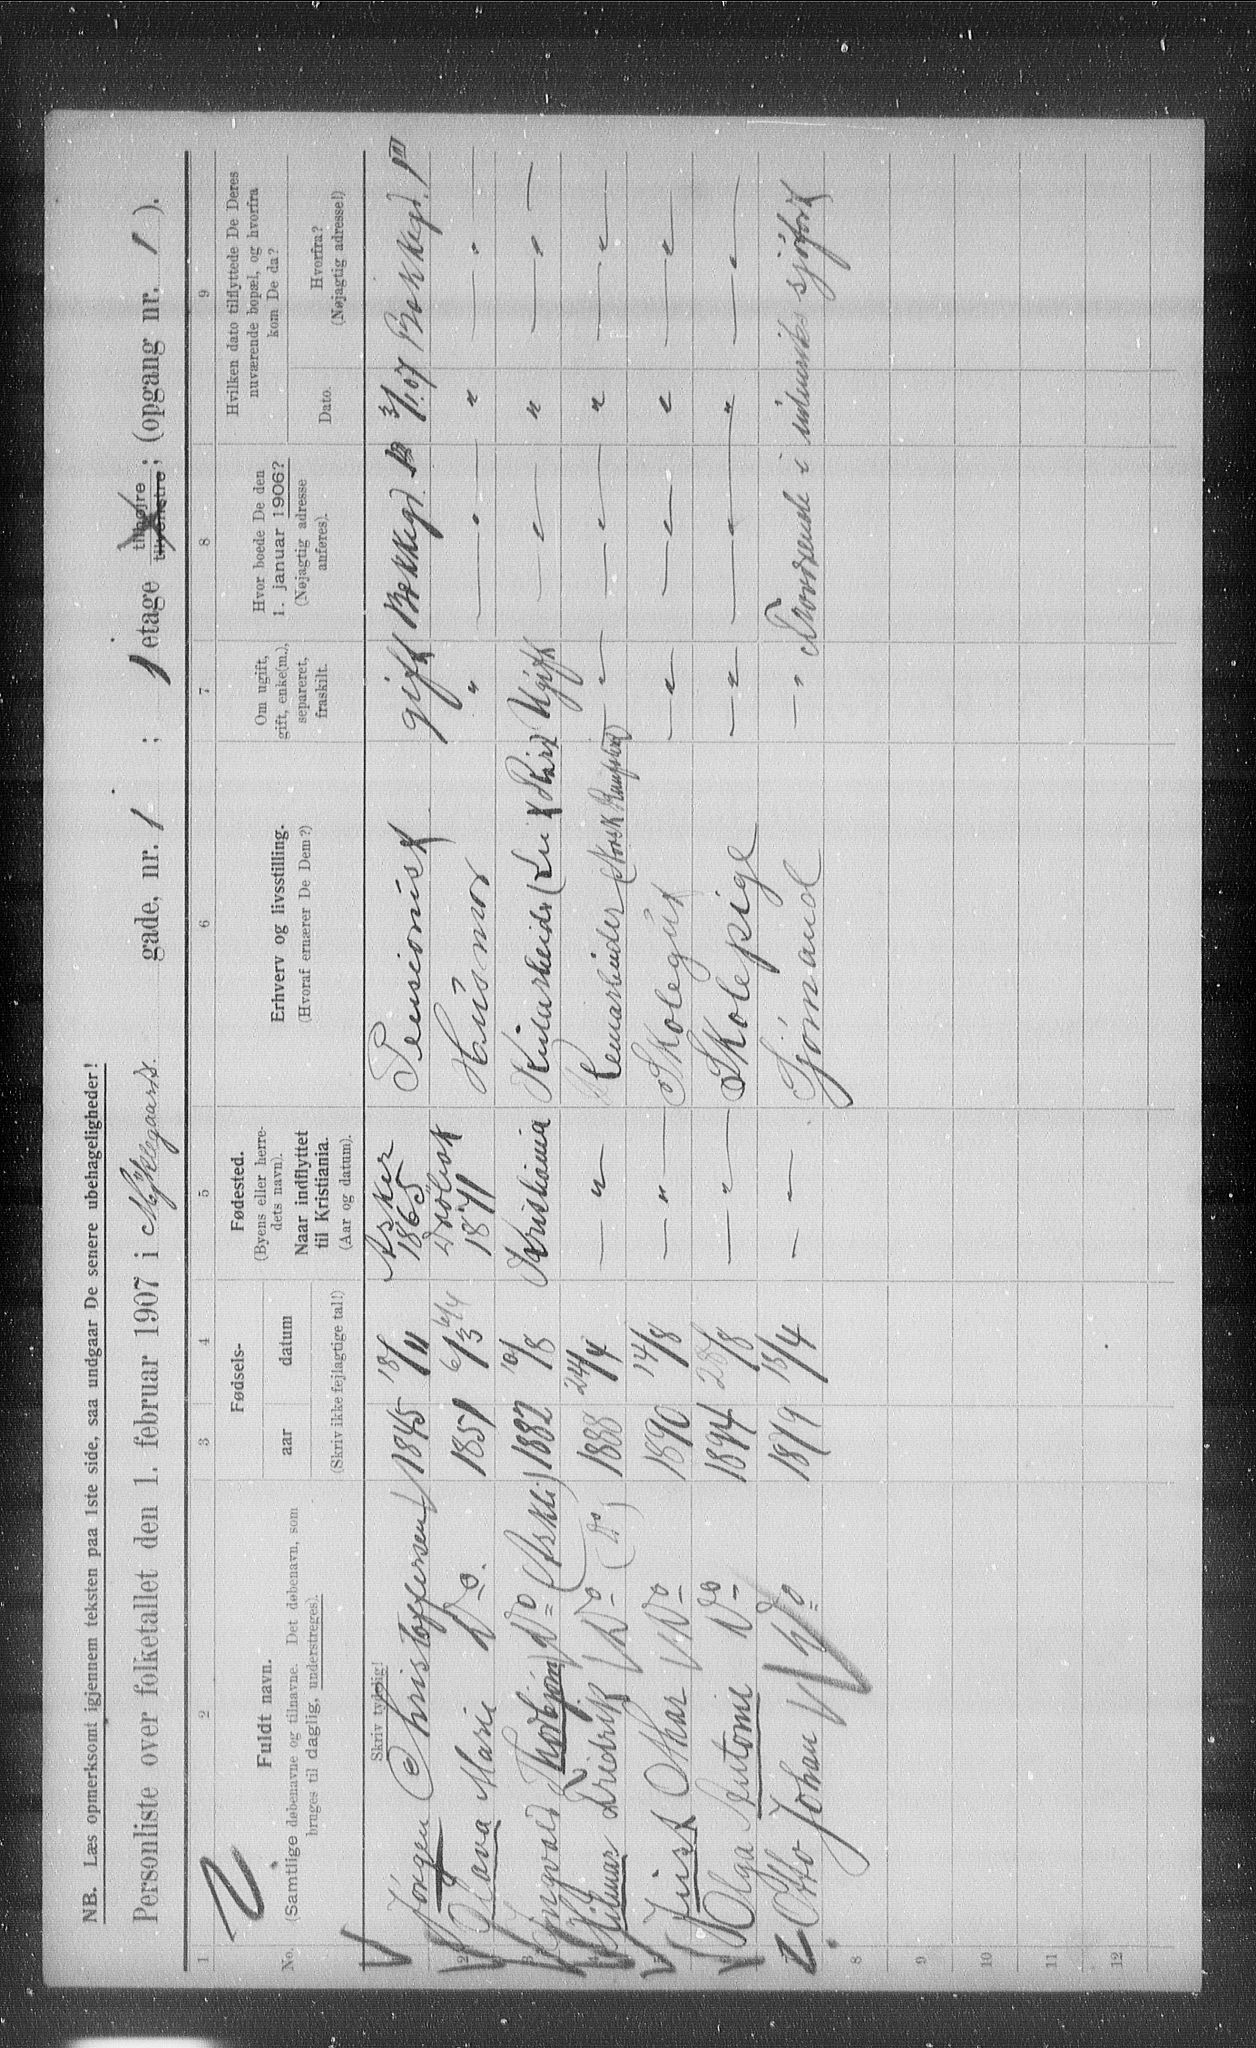 NB. Læs opmerksomt igjennem teksten paa 1ste side, saa undgaar De senere ubehageligheder!
Personliste over folketallet den 1. februar 1907 i Myklegaards. gade, nr. 1 ; 1 etage tilhøire tilvenstre; (opgang nr. 1 ).
1 2 3 4 5 6 7 8 9
No.
Fuldt navn.
(Samtlige døbenavne og tilnavne. Det døbenavn, som bruges til daglig, understreges).
Fødsels-
aar datum
(Skriv ikke feilagtige tal!)
Fødested.
(Byens eller herredets navn).
Naar indflyttet til Kristiania.
(Aar og datum).
Erhverv og livsstilling.
(Hvoraf ernærer De Dem?)
Om ugift, gift, enke(m.), separeret, fraskilt.
Hvor boede De den 1. januar 1906?
(Nøjagtig adresse anføres).
Hvilken dato tilflyttede De Deres nuværende bopæl, og hvorfra kom De da?
Dato.
Hvorfra?
(Nøjagtig adresse!)
Skriv tydelig!
Jörgen Christoffersen 1845 18/11 Asker 1865 Pensionist gift Bekkegd. 3/1 07 Bekkegd.
2 Marie Do. 1851 6/3 Dröbak 1871 Husmor " " " "
3 Ingvald Thorbjörn Do 1882 10/8 Kristiania Ugift " " "
4 Hilmar Fredrik Do (Do) 1888 24/4 " " " " "
Just Othar Do 1890 14/8 " Skolegut " " " "
Olga Antonie Do 1894 28/8 " Skolepige " " " "
Otto Johan Do 1879 18/4 " Sjömand " Fraværende i udenriks sjöfart
8
9
10
11
12